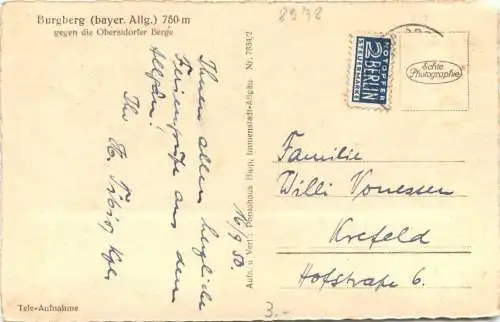 Burgberg (bayer. Allg.) 750 m
gegen die Oberstdorfer Berge
8978
Ihnen allen herzliche
Feriengrüße aus dem
Allgäu!
Ihr H.
16/9 50.
Aufn. u. Verl.: Photohaus Hipp, Immenstadt-Allgäu Nr. 7654/2
NOTOPFER
2 BERLIN
STEUERMARKE
Echte
Photographie
Familie
Willi Vonessen
Krefeld
Hofstraße 6.
3.-
Tele-Aufnahme